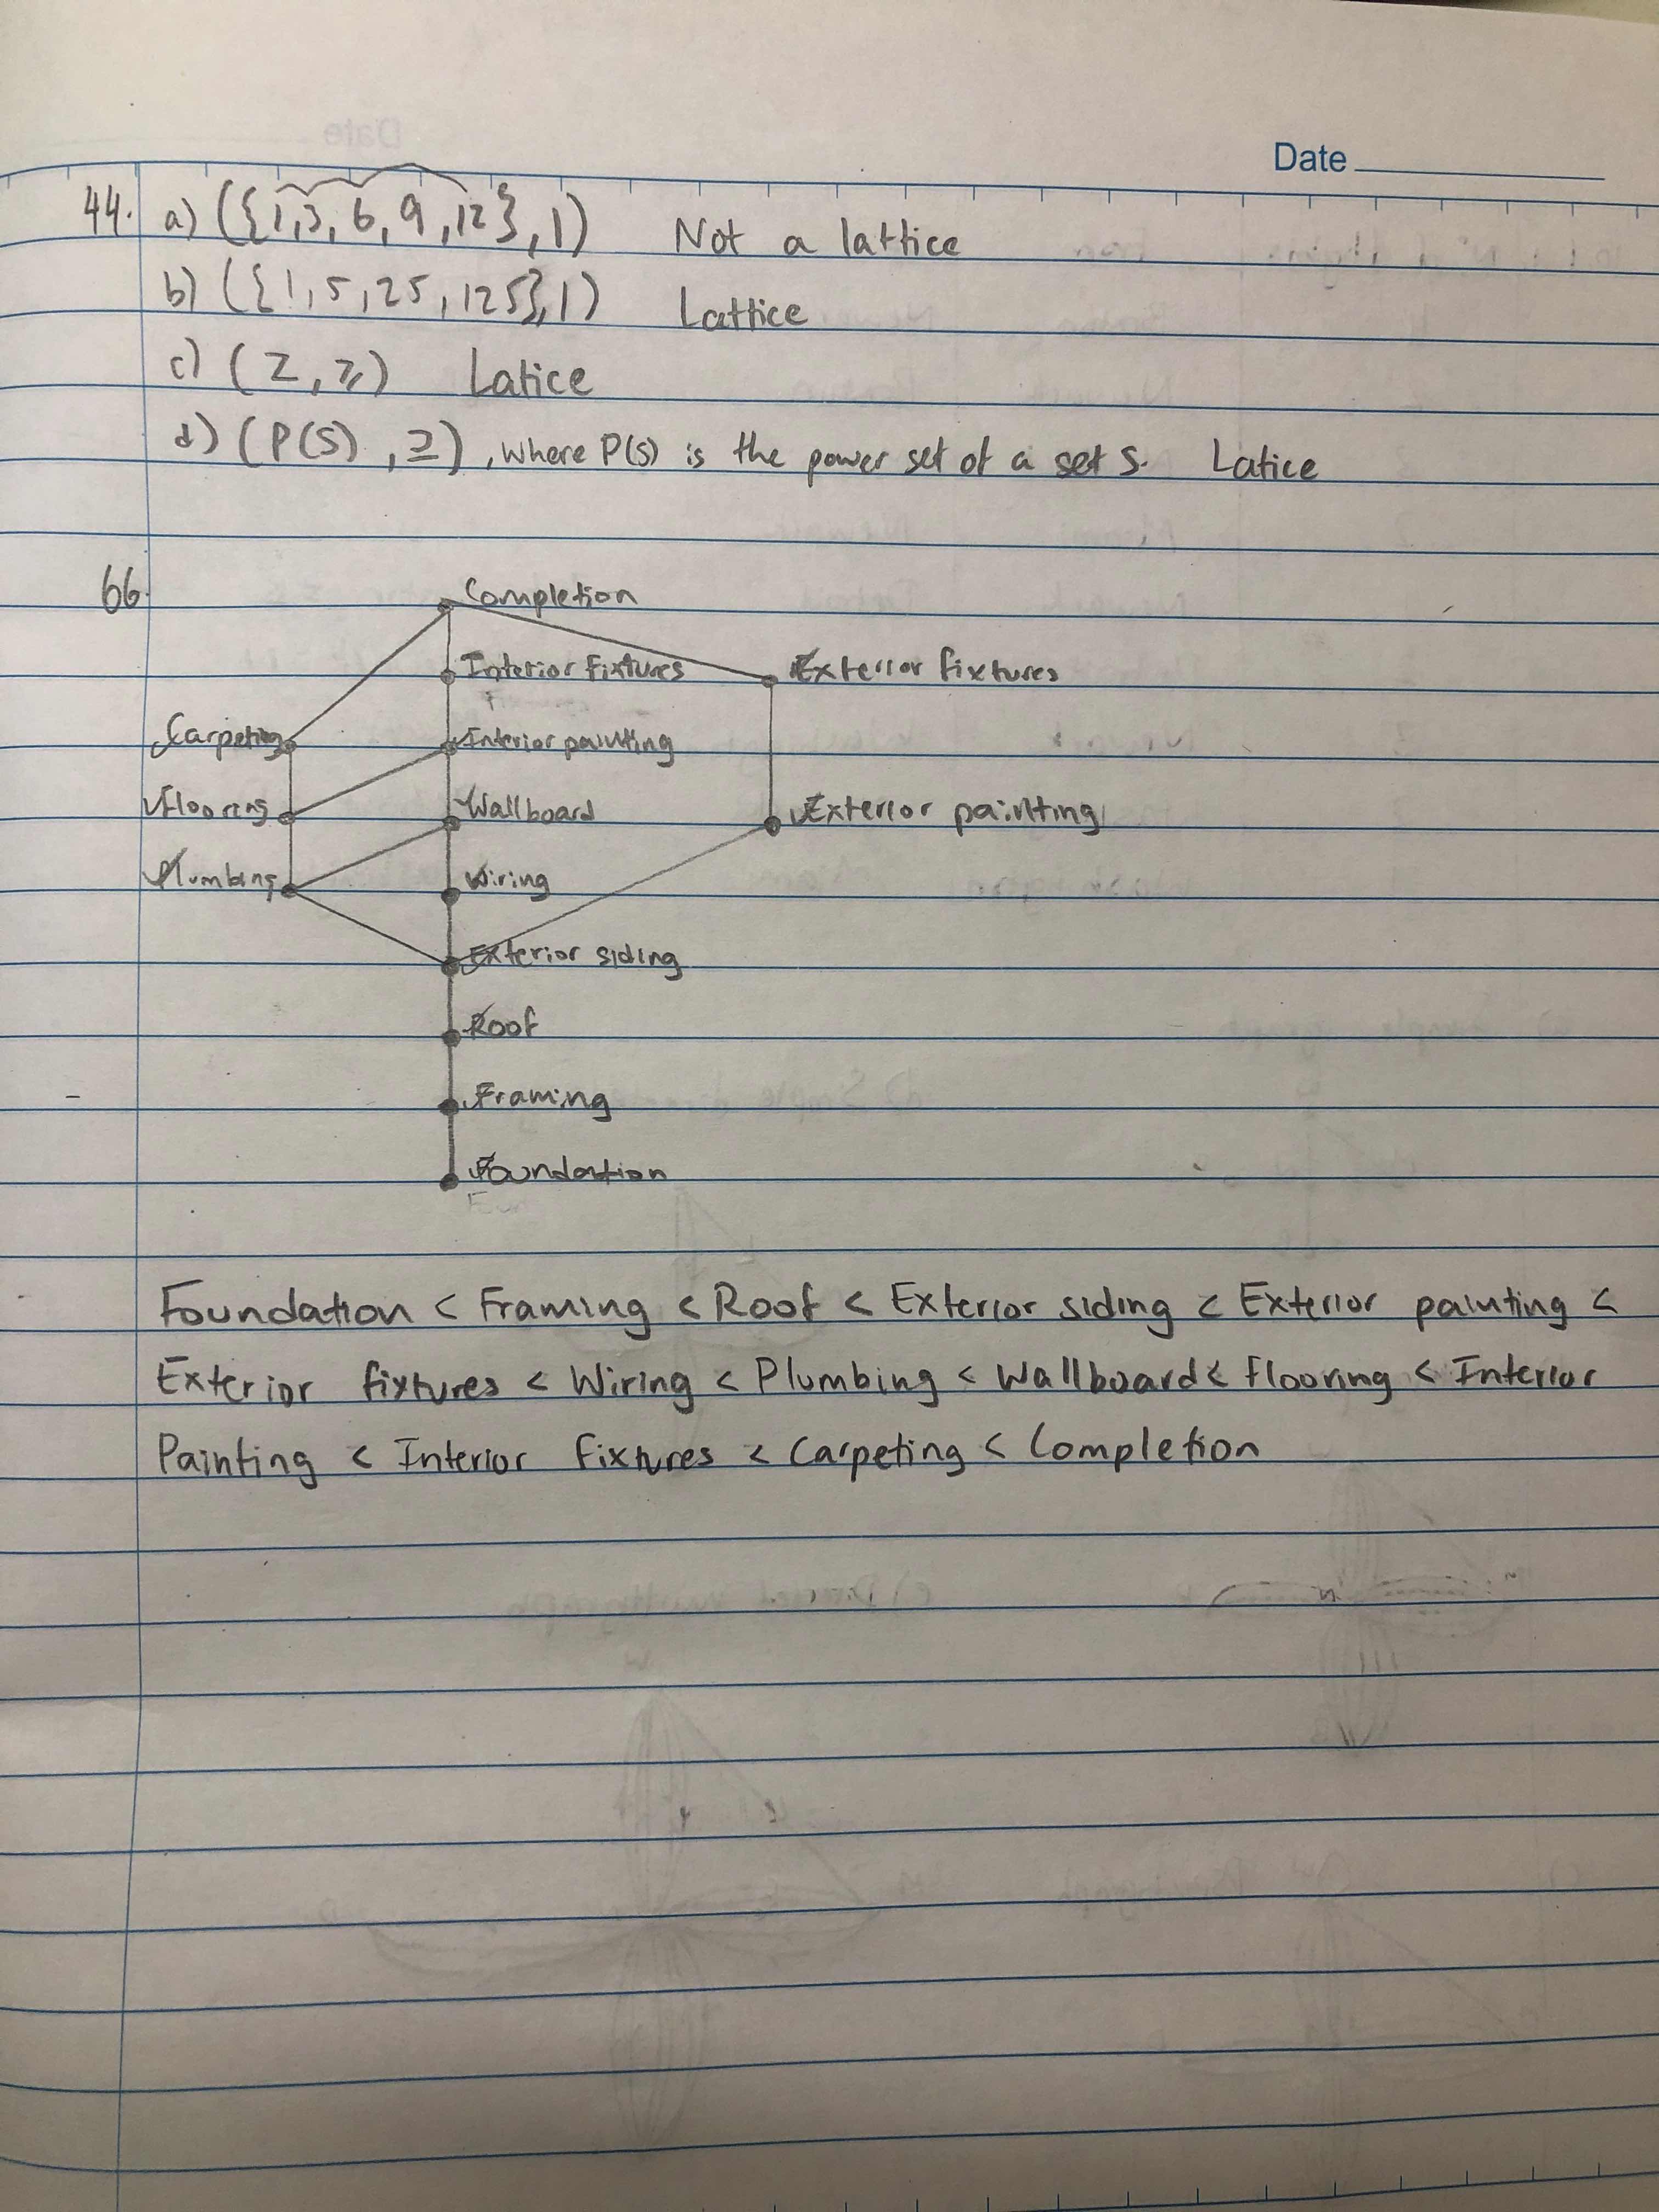 Date
44. a) ({1,3,6,9,12},|) Not a lattice
b) ({1,5,25,125},|) Lattice
c) (Z,≥) Latice
d) (P(S),⊇), where P(S) is the power set of a set S. Latice
66.
Completion
Interior fixtures
Exterior fixtures
Carpeting
Interior painting
Flooring
Wallboard
Exterior painting
Plumbing
Wiring
Exterior siding
Roof
Framing
Foundation
Foundation < Framing < Roof < Exterior siding < Exterior painting <
Exterior fixtures < Wiring < Plumbing < Wallboard < flooring < Interior
Painting < Interior fixtures < Carpeting < Completion